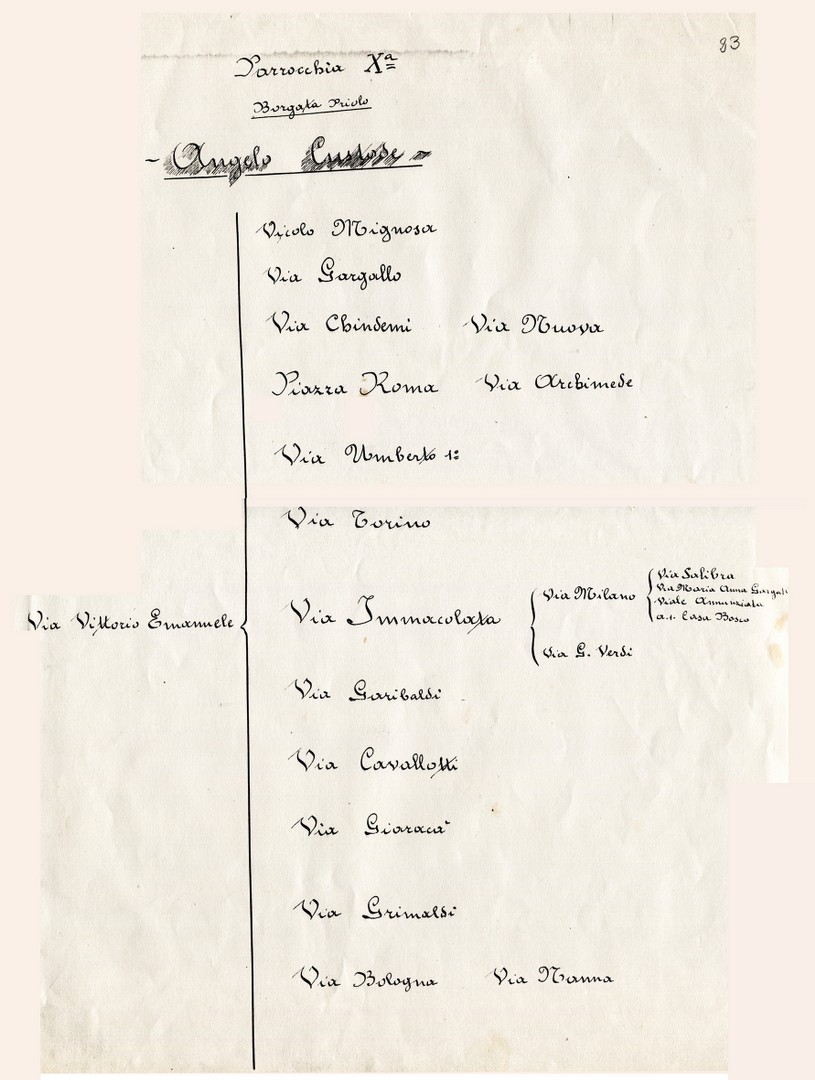 83
Parrocchia Xª
Borgata Priolo
- Angelo Custode -
Vicolo Mignosa
Via Gargallo
Via Chindemi Via Nuova
Piazza Roma Via Archimede
Via Umberto 1º
Via Torino
Via Vittorio Emanuele
Via Immacolata
Via Milano
Via Salibra
Via Maria Anna Gargall
Viale Annunziata
a.t. Casa Bosco
Via G. Verdi
Via Garibaldi
Via Cavallotti
Via Giaracà
Via Grimaldi
Via Bologna Via Nanna